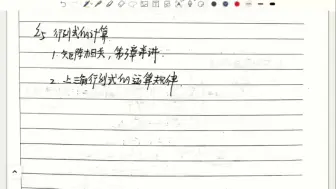 §5 行列式的计算
1. 矩阵相关，第3章来讲.
2. 上三角行列式的运算规律.